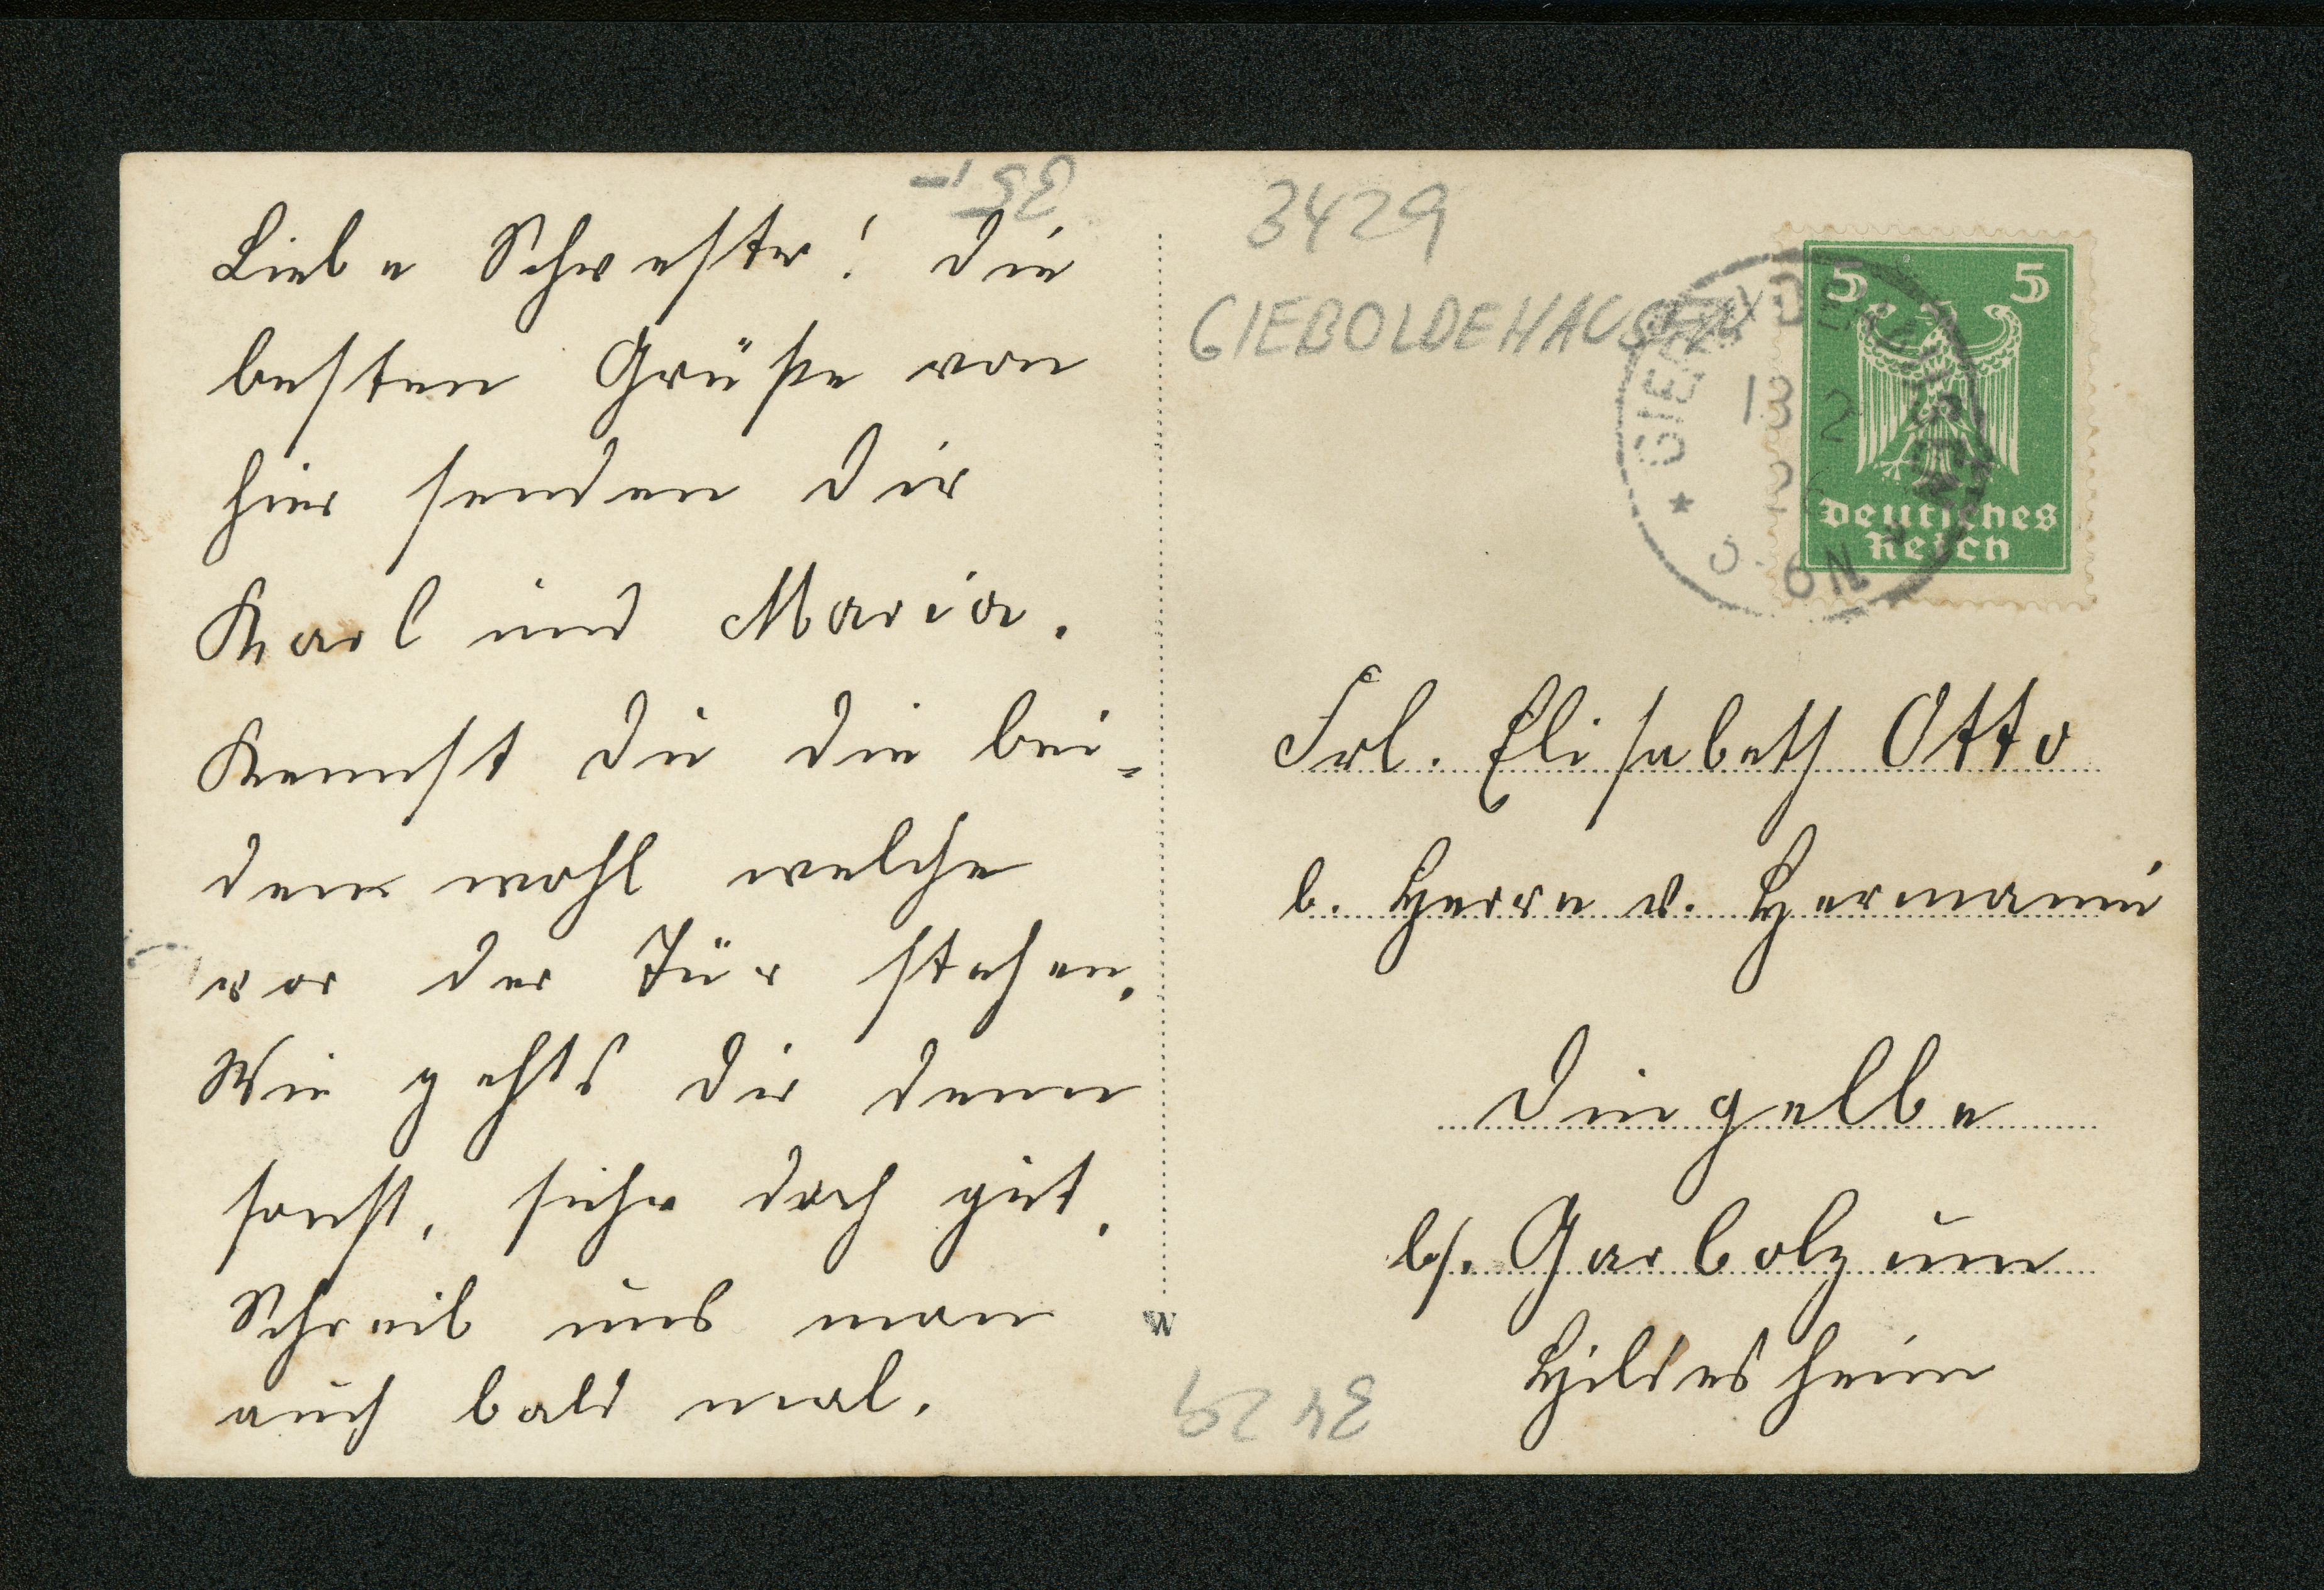 35,-
Liebe Schwester! Die
besten Grüße von
hier senden Dir
Karl und Maria.
Kennst Du die bei-
den wohl welche
vor der Tür stehen.
Wie gehts Dir denn
sonst, sicher doch gut.
Schreib uns man
auch bald mal.
3429
GIEBOLDEHAUSEN
5 5
Deutsches
Reich
13 2
26
Frl. Elisabeth Otto
b. Herrn v. Hermanni
Dingelbe
b/. Garbolzum
Hildesheim
W
3429